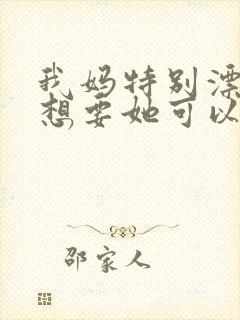 我妈特别漂
想要她可以
邵家人